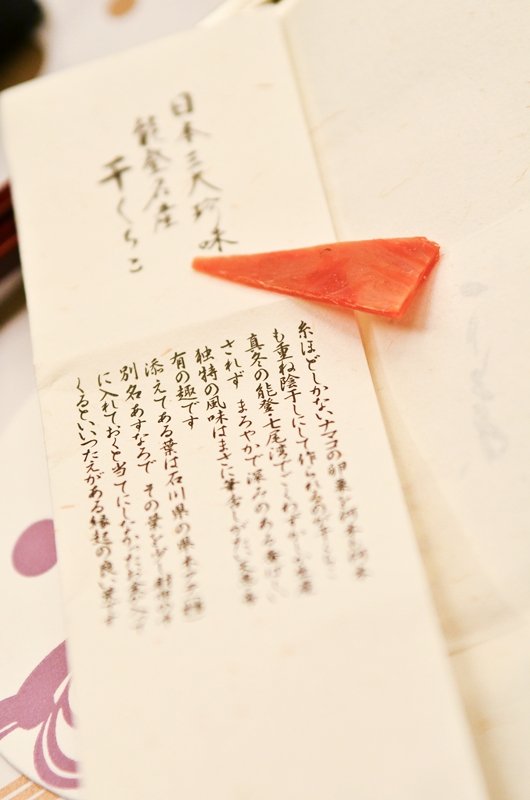 日本三大珍味
能登名産
干くちこ
糸ほどしかないナマコの卵巣を何本も何本
も重ね陰干しにして作られるのがくちこ
真冬の能登・七尾湾でごくわずかしか生産
されず まろやかで深みのある味
独特の風味はまさに筆舌しがたい
有の趣です
添えてある葉は石川県の県木アテ
別名あすなろで その葉を
に入れておくと当てにしなかったお金が入って
くるといういいつたえがある縁起の良い葉です